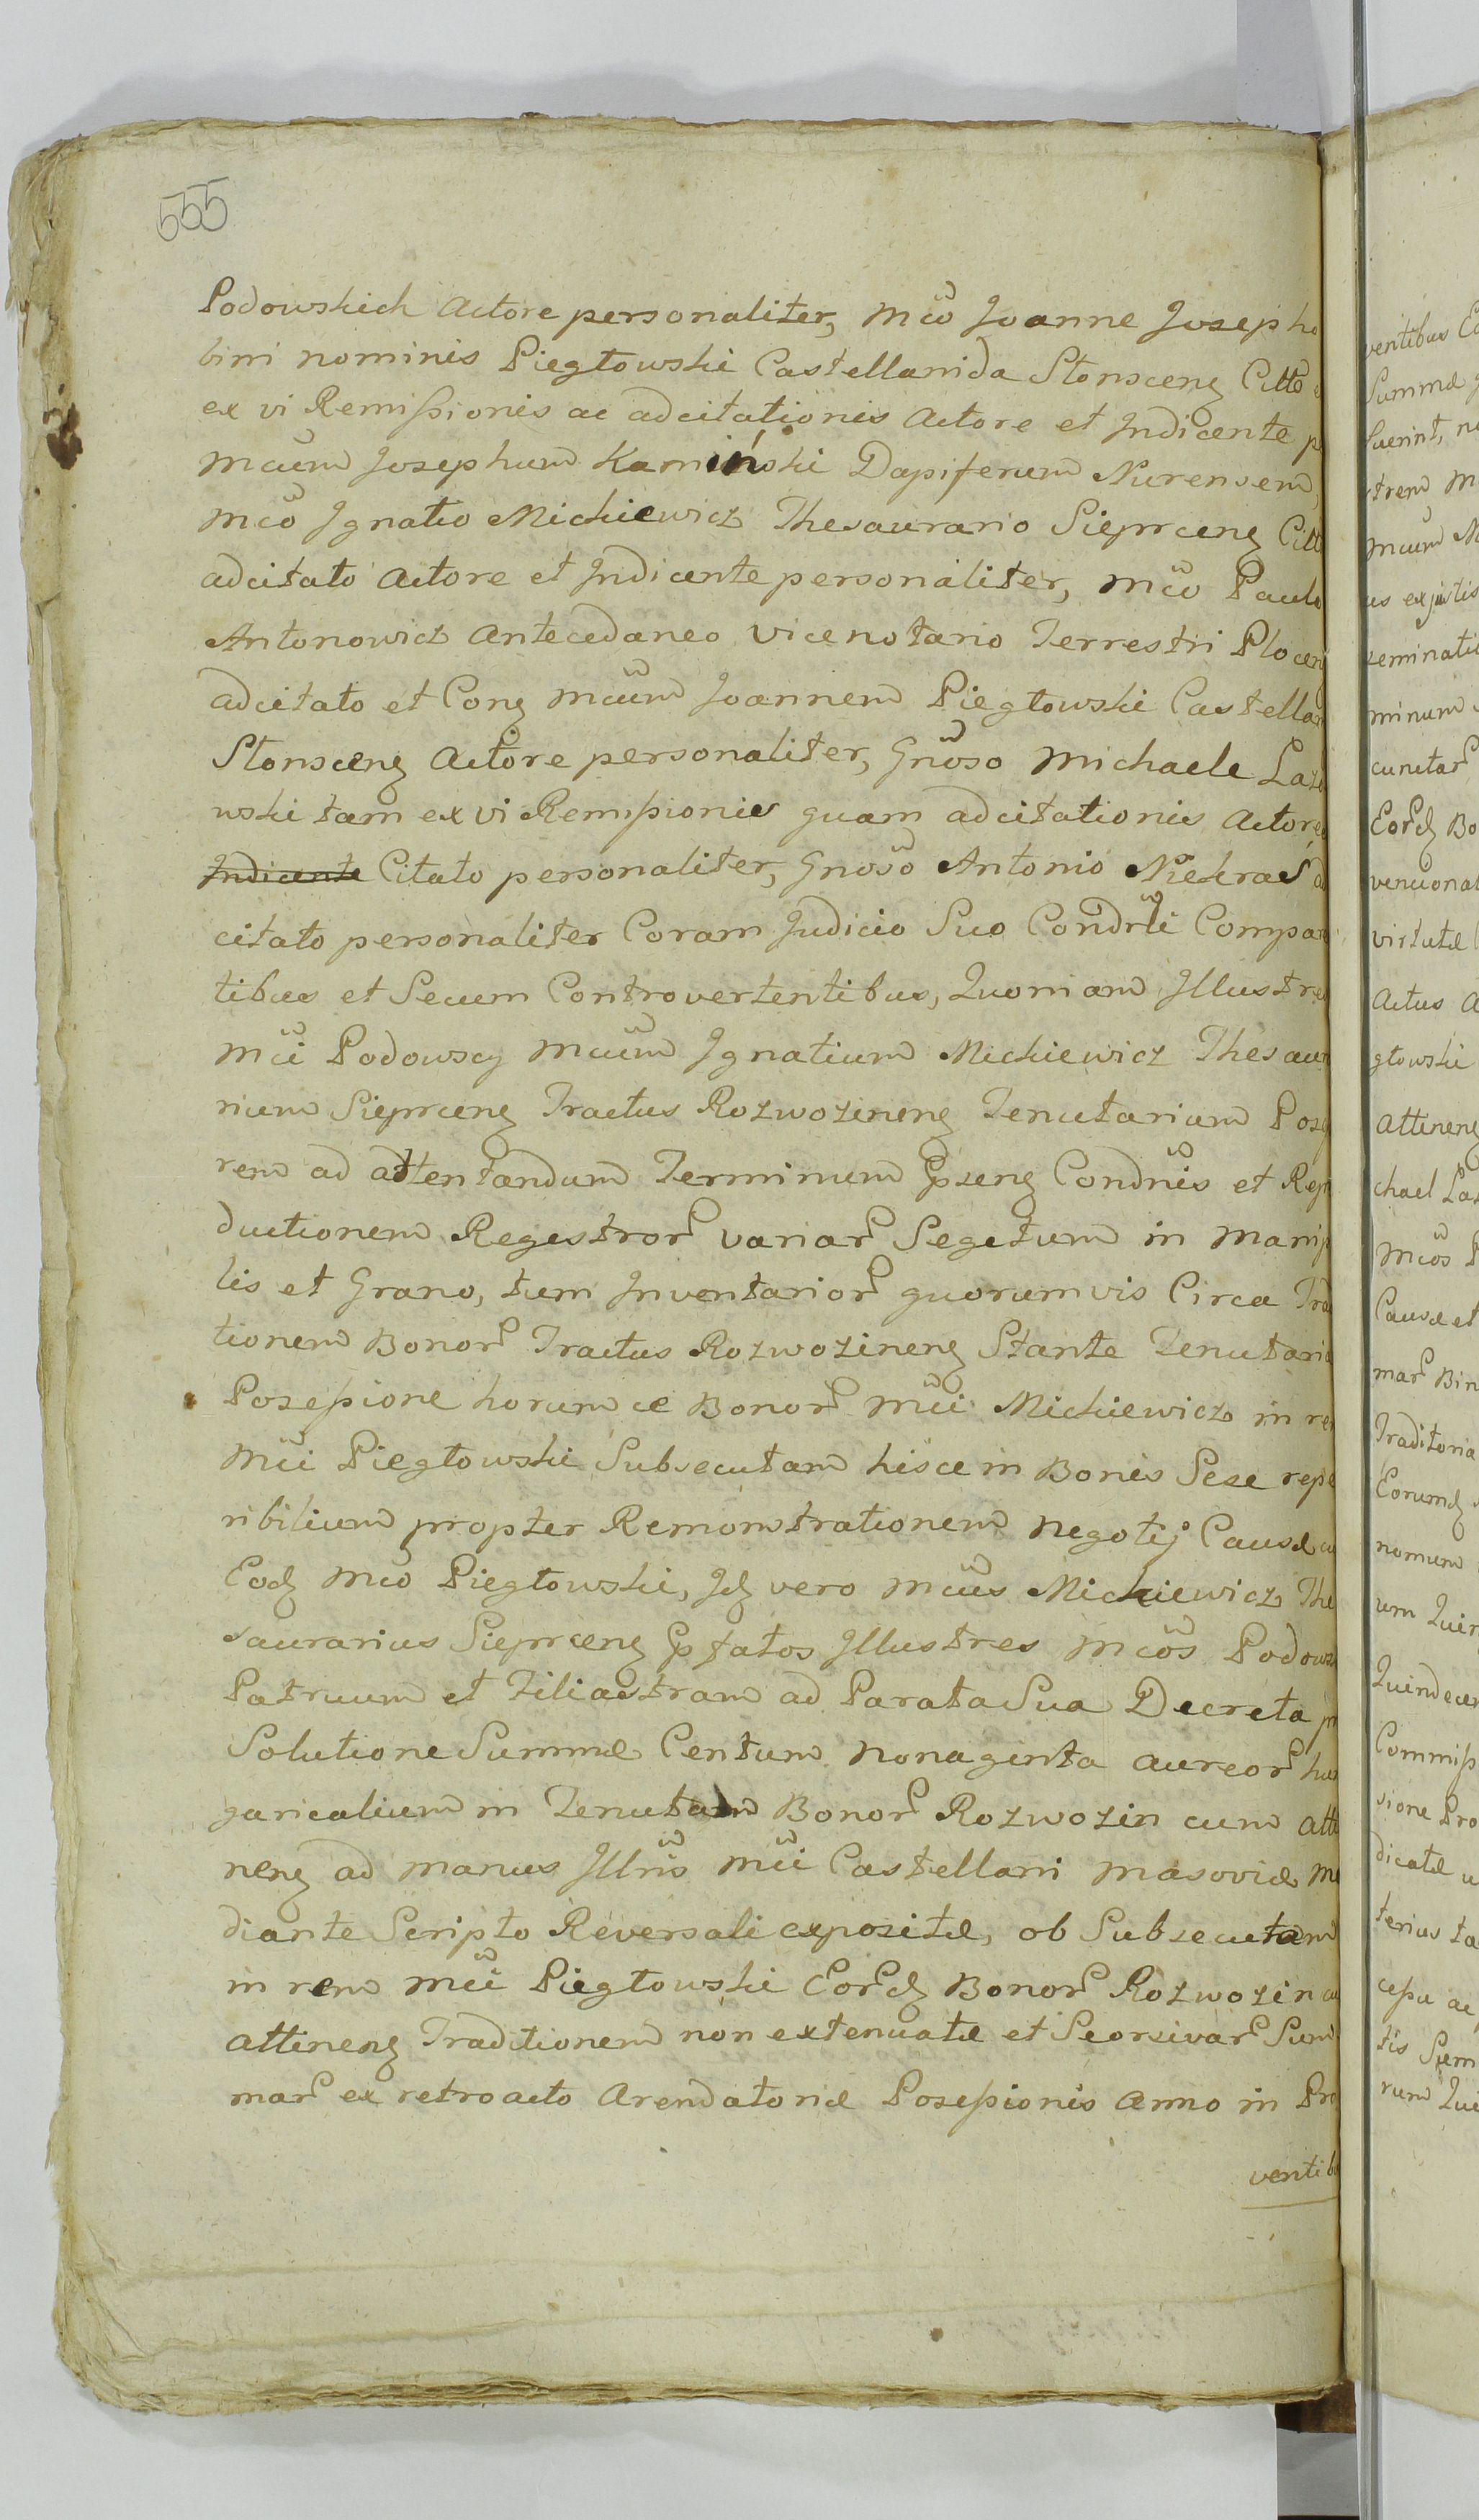 555
Podowskich Actore personaliter, Mco Joanne Josepho
bini nominis Piegłowski Castellanida Słonsceng Citto
ex vi Remissionis ac adcitationis Actore et Indicente p
Mcum Josephum Kamiński Dapiferum Nurensem,
Mco Ignatio Mickiewicz Thesaurario Sieprceng Citt
adcitato Actore et Indicente personaliter, Mco Paulo
Antonowicz Antecedaneo vicenotario Terrestri Ploceng
adcitato et Cong Mcum Joannem Piegłowski Castellan
Słonsceng Actore personaliter, Gnoso Michaele Laz
wski tam ex vi Remissionis quam adcitationis Actore
Indicente Citato personaliter, Gnoso Antonio Niekraś a
citato personaliter Coram Judicio Suo Condrli Compar
tibus et Secum Controvertentibus, Quoniam Illustres
Mci Podowscy Mcum Ignatium Mickiewicz Thesaur
rium Sieprceng Tractus Rozwozineng Tenutarium Pos
rem ad attentandum Terminum Pseng Condnis et Rep
ductionem Regestror variar Segetum in Manip
lis et Grano, tum Inventarior quorumvis Circa Tra
tionem Bonor Tractus Rozwozineng Stante Tenutaria
Posessione horumce Bonor Mci Mickiewicz in re
Mci Piegłowski Subsecutam hisce in Bonis Sese repe
ribilium propter Remonstrationem negotij Causæ cu
Eod Mco Piegłowski, Id vero Mcus Mickiewicz The
saurarius Sieprceng Pfatos Illustres Mcos Podows
Patruum et Filiastram ad Parata Sua Decreta pr
Solutione Summæ Centum Nonaginta aureor hun
garicalium in Tenutam Bonor Rozwozin cum atti
neng ad manus Illris Mci Castellani Masoviæ Me
diante Scripto Reversali expositæ, ob Subsecutam
in rem Mci Piegłowski Eord Bonor Rozwozin cu
attineng Traditionem non extenuatæ et Seorsivar Sum
mar ex retroacto Arendatoriæ Posessionis Anno in Pro
ventib
ventibus
Summæ
fuerint,
Mcum
us expistis
seminatio
minum
cunctar
Eord Bo
virtute
Actus
głowski
attineng
chael Laz
Mcos P
Causæ et
mar Bin
Traditoria
Eorumd
nomum
um Quin
Quindecem
Commiss
sione Pro
dicatæ
terius ta
cessu ac
tis Sum
rum Qui